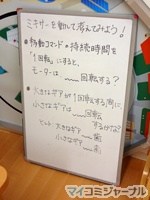 ミキサーを動かして考えてみよう!
移動コマンドの持続時間を
「1回転」にすると、
モーターは ___ 回転する?
大きなギアが1回転する間に
小さなギアは ___ 回転
するかな?
ヒント: 大きなギア ___ 歯
小さなギア ___ 歯
マイコミジャーナル